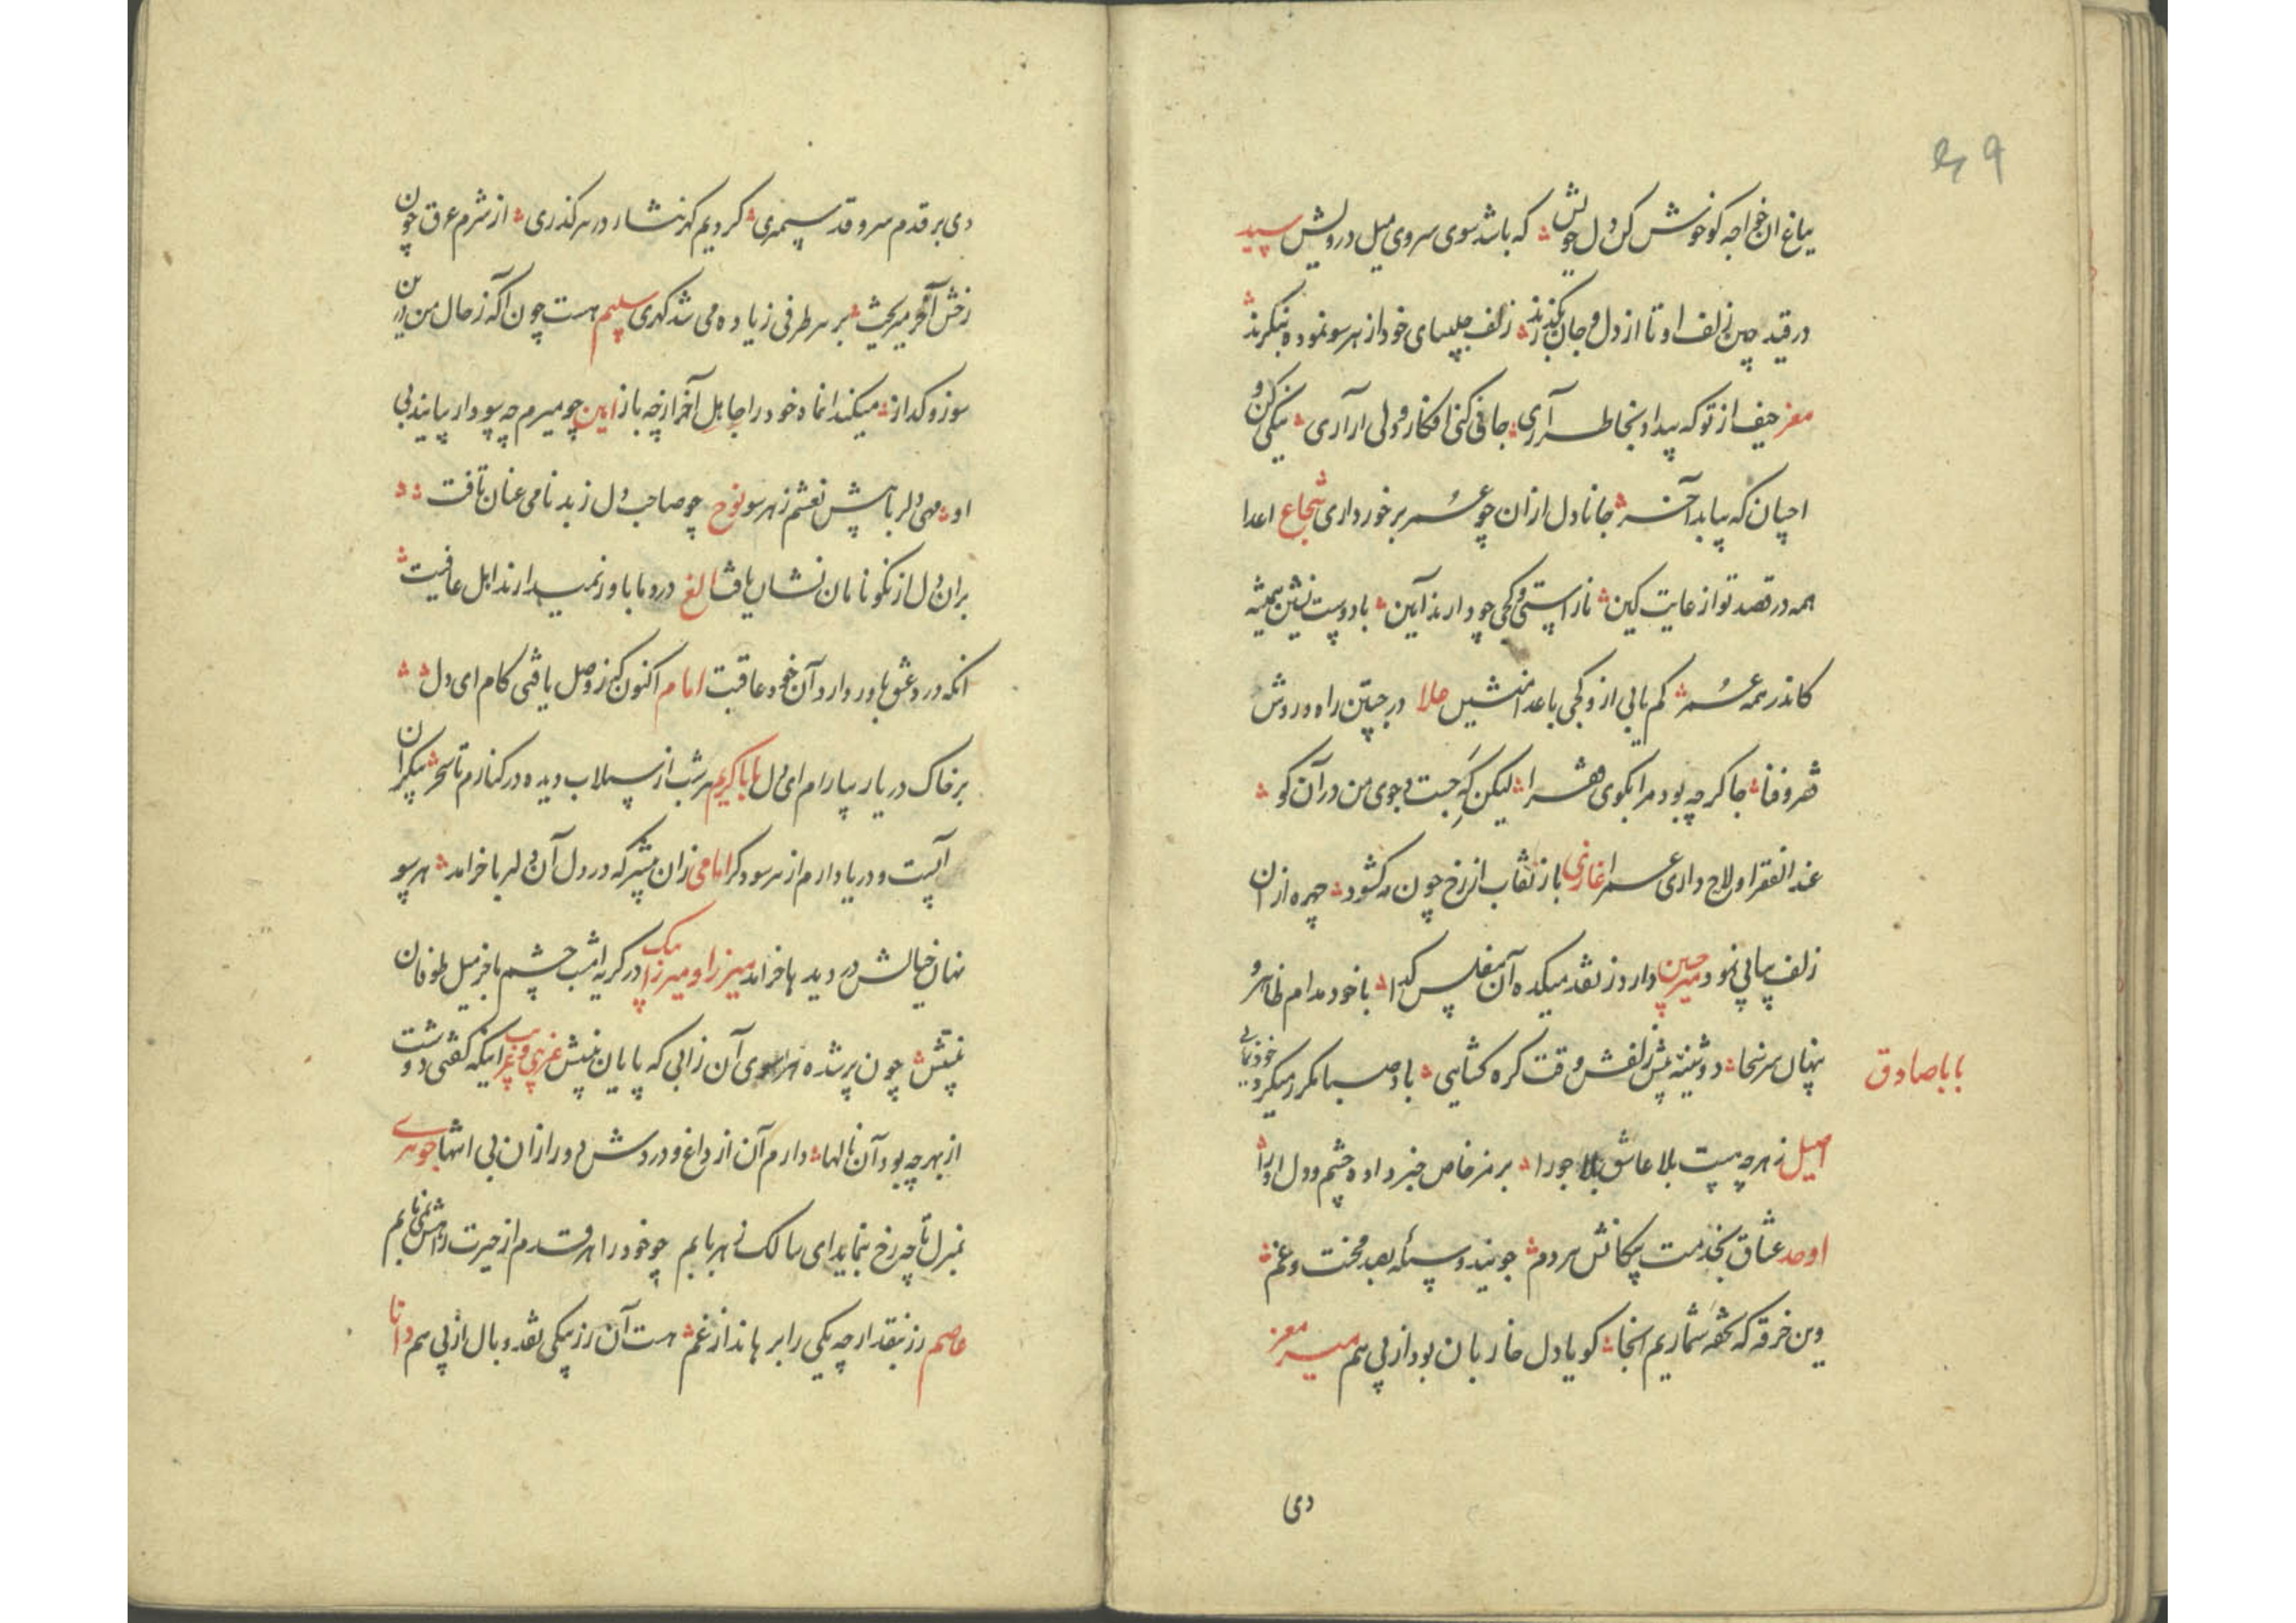 بباغ ان خواجه کو خوش کن دل خویش که باشد سوی سروی میل درویش سید
در قید چین زلف او تا از دل و جان بگذرند زلف چلیپای خود از هر سو نموده بنگرند
معز حیف از تو که بیداد بخاطر آری جانی کنی افکار و دلی ازاری نیکی کن و
احسان که بیابد آخر جانا دل ازان چو عمر برخورداری شجاع اعدا
همه در قصد تو از غایت کین نا راستی و کجی چو دارند آیین با دوست نشین همیشه
کاندر همه عمر کم یابی ازو کجی با عدا منشین ملا در جستن راه و روش
فقر و فنا جا کرچه بود مرا بکوی فقرا لیکن که جست و جوی من در آن کو
عند الفقرا و لاح داری عسرا غازی باز نقاب از رخ چون مه کشود چهره از ان
زلف پیاپی نمود میر حسین دارد ز نقد میکده آن مفلس کدا با خود مدام ظاهر و
پنهان سرنجا دوشینه پیش زلفش وقت کره کشایی باد صبا مکرر میکرد خودنمایی
بابا صادق
اصیل ز هرچه هست بلا عاشق بلا جو را برمز خاص خبر داده چشم و دل او را
اوحد عشاق بخدمت سکانش هر دم جویند وسیله بصد محنت و غم
وین خرقه که تحفه شماریم اینجا کویا دل خار بان بود از پی هم میر معز
دی
دی بر قدم سرو قد سیمبری کردیم کهر نثار در هر کذری از شرم عرق چون
زخش آخر میریخت بر هر طرفی زیاده می شد کهری سلیم هست چون آکه ز حال من درین
سوز و کداز میکند انماه خود را جاهل آخر از چه باز امین چو میرم چه بود ار یابند بی
او مهی دلربا پیش نعشم ز هر سو نوح چو صاحب دل ز بدنامی عنان تافت
بران دل از نکونامان نشان یافت الغ درد ما باور نمیدارند اهل عافیت
انکه درد عشق باور دارد آن خود عاقبت امام اکنون که ز وصل یافتی کام ای دل
بر خاک در یار بیارام ای دل بابا کریم هر شب از سیلاب دیده در کنارم تا سحر بیکران
آبیست و دریا دارم از هر سو دکر امامی زان میشتر که در دل آن دلربا خرامد هر سو
نهان خیالش در دیدها خرامد میرزا و میرزا بیک در کریه امشب چشم با خر میل طوفان
نیستش چون پر شده هر سوی آن زابی که پایان نیستش غریبی و غریب اینکه کفتی دوشت
از بهر چه بود آن نالها دارم آن از داغ و دردش دور ازان بی انتها جوهری
نمیرل تا چه رخ بنماید ای سالک ز هر بابم چو خود را هر قدم از حیرت راهش نمی یابم
عاصم رز نبقد ار چه یکی را برهاند از غم هست آن رز بیکی نقد و بال از پی هم دانا